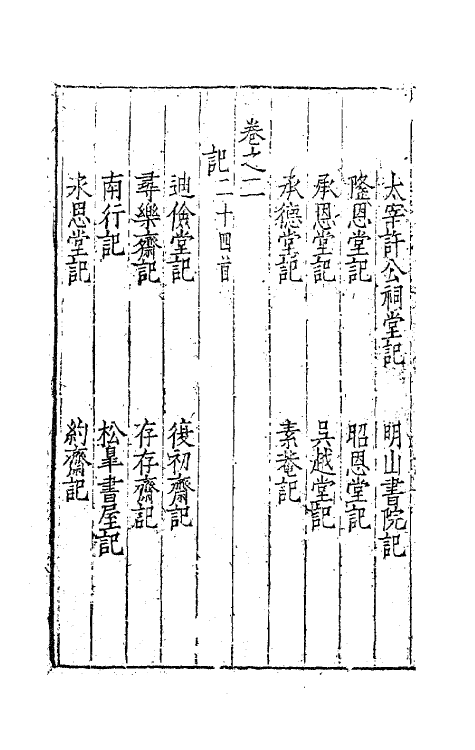 太宰許公祠堂記　明山書院記
隆恩堂記　昭恩堂記
承恩堂記　吳越堂記
承德堂記　素菴記
卷之二
記二十四首
迪儉堂記　復初齋記
尋樂齋記　存存齋記
南行記　松臯書屋記
永思堂記　約齋記